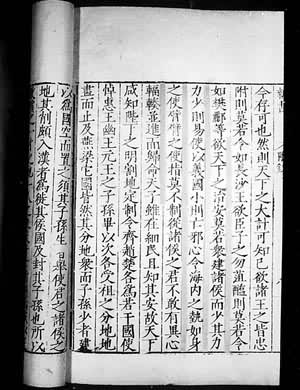 令存可也然則天下之大計可知已欲諸王之皆忠
附則莫若令如長沙王欲臣子之勿菹醢則莫若令
如樊酈等欲天下之治安莫若衆建諸侯而少其力
力少則易使以義國小則亡邪心令海内之勢如身
之使臂臂之使指莫不制從諸侯之君不敢有異心
輻輳並進而歸命天子雖在細民且知其安故天下
咸知陛下之明割地定制令齊趙楚各爲若干國使
悼惠王幽王元王之子孫畢以次各受祖之分地地
盡而止及燕梁它國皆然其分地衆而子孫少者建
以爲國空而置之須其子孫生者舉使君之諸侯之
地其削頗入漢者爲徙其侯國及封其子孫也所以